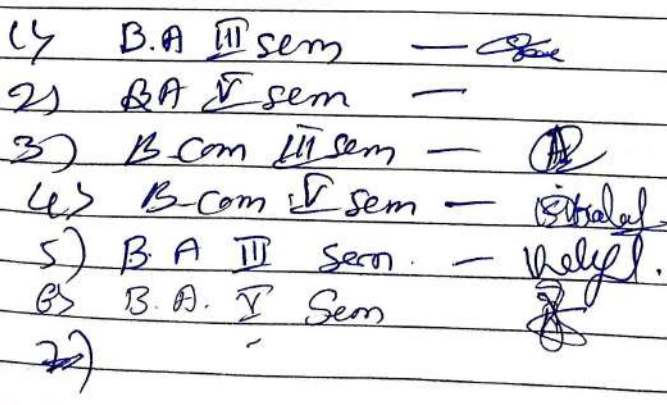 1) B.A III sem —
2) BA V sem —
3) B-com III sem —
4) B-com V sem —
5) B.A III sem. —
6) B.A. V Sem
7)